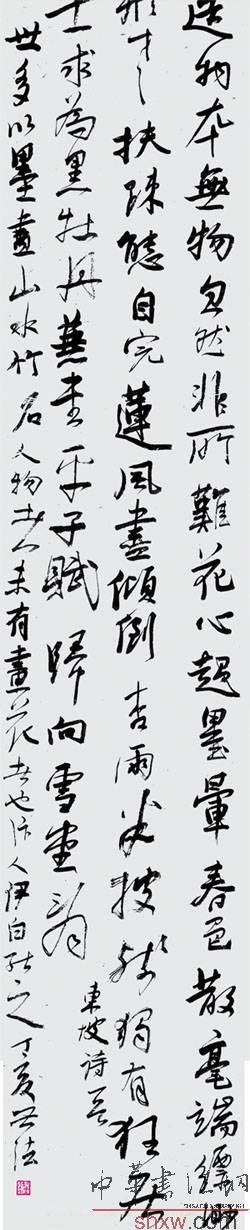 造物本無物忽然非所難花心起墨暈春色散毫端縹緲
形才扶疎態自完蓮風盡傾倒杏雨半披殘獨有狂居
士求為黑牡丹兼書平子賦歸向雪堂看
東坡詩
世多以墨畫山水竹石人物者未有畫花者也汴人伊白能之丁亥
中華書法網
snxw.com